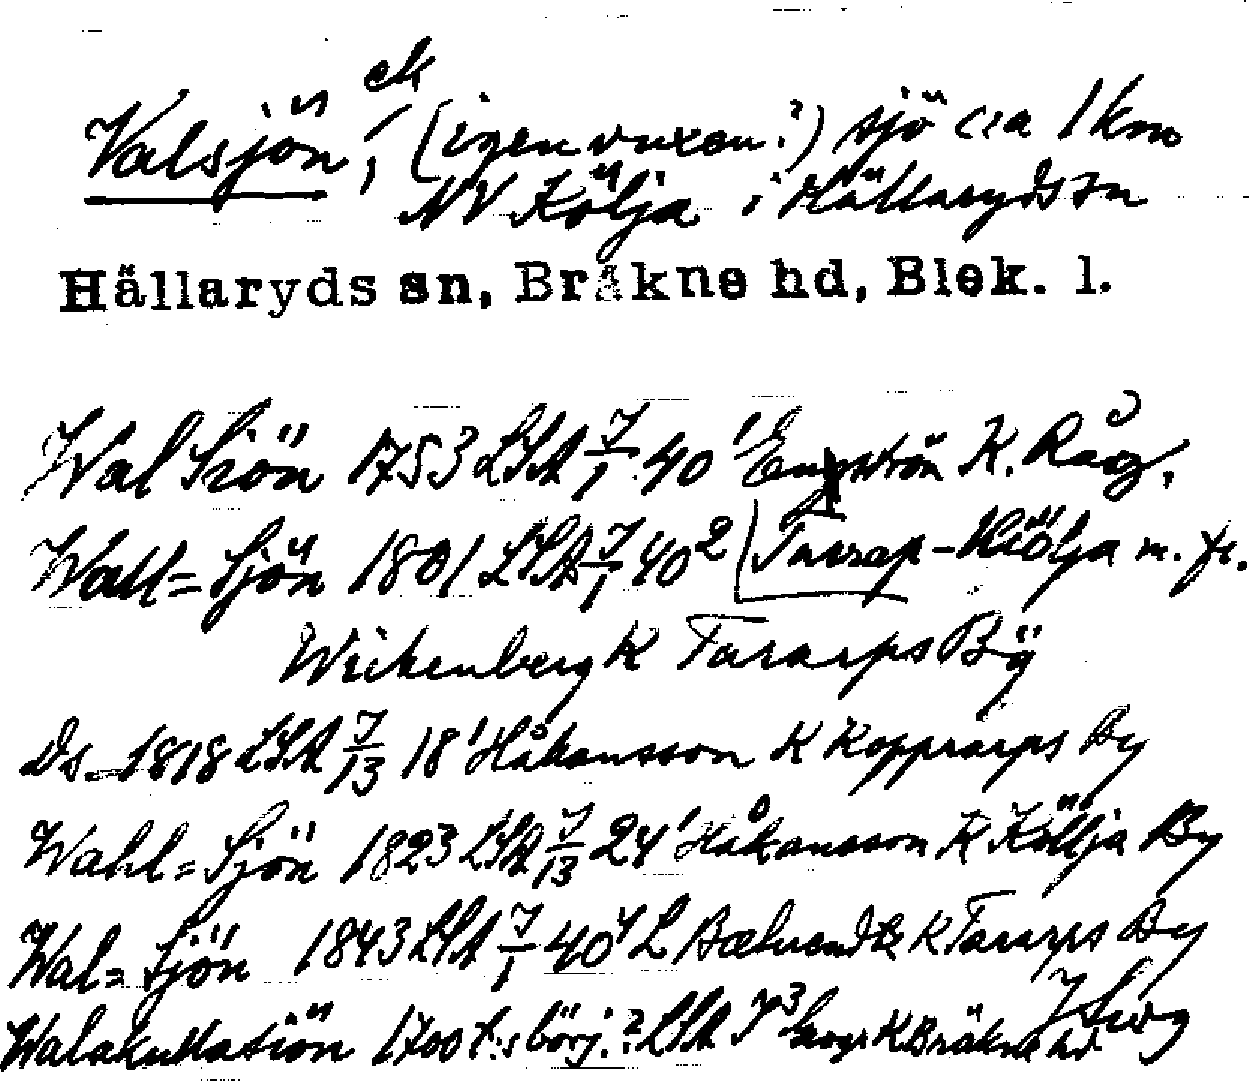 Valsjön, ek (igenvuxen?) sjö c:a 1 km
NV Kölja i Hällaryds sn
Hällaryds sn, Bräkne hd, Blek. l.
Wal Siön 1753 LSA 7/1 40¹ Engström K. Råg.
Wall=Sjön 1801 LSA 7/1 40² Tararp-Kiölja m. fl.
Wickenberg K Tararps Bÿ
Ds. 1818 LSA 7/13 18¹ Håkansson K Kopprarps By
Wahl=Sjön 1823 LSA 7/13 24¹ Håkansson K Köllja By
Wal=Sjön 1843 LSA 7/1 40⁴ L K Tararps By
1700t:s börj.? LSA K Bräkne hd